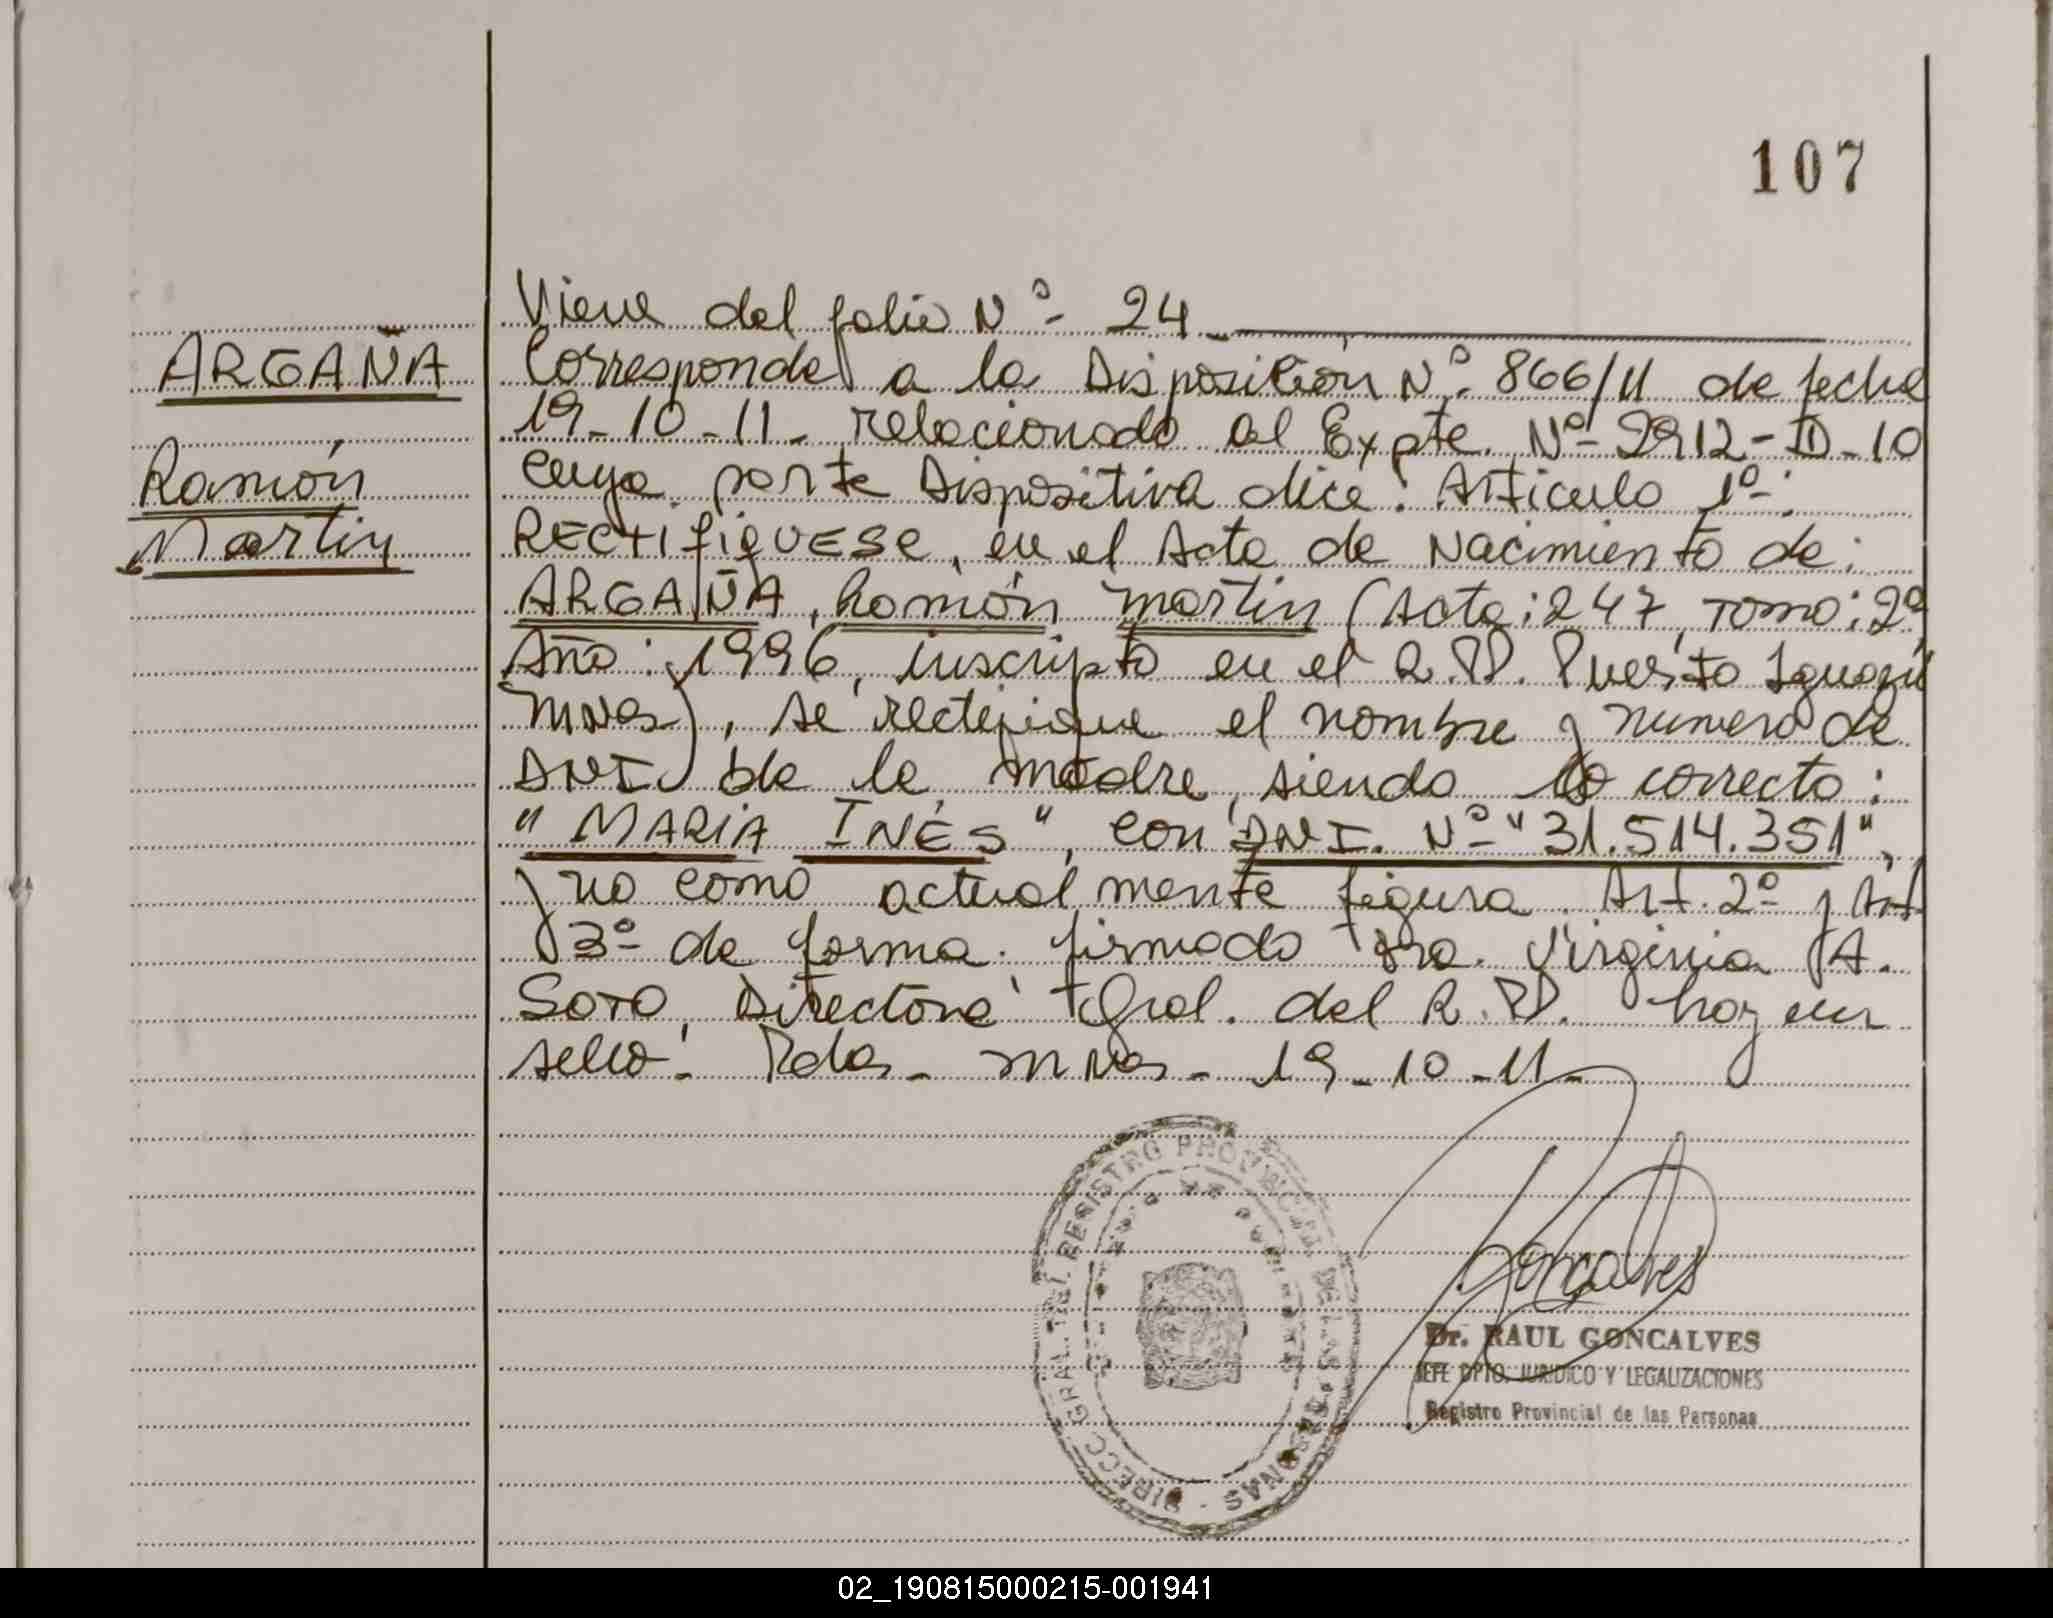 107
Viene del folio Nº- 24
ARGAÑA
Corresponde a la Disposición Nº- 866/11 de fecha
19-10-11- relacionado al Expte. Nº- 2912-D-10
Ramón
cuya parte Dispositiva dice: Artículo 1º-:
Martin
RECTIFIQUESE, en el Acta de Nacimiento de:
ARGAÑA, Ramón Martin (Acta: 247, Tomo: 2º,
Año: 1996, inscripto en el R.P.P. Puerto Iguazú
Mnes), se rectifique el nombre y numero de
DNI de la madre, siendo lo correcto:
"MARIA INÉS", con DNI. Nº- "31.514.351",
y no como actualmente figura. Art. 2º y Art
3º- de forma. firmado Dra. Virginia A.
Soto, Directora Gral. del R.P.P. hay un
sello- Pdas- Mnes- 19-10-11-
DIRECC. GRAL. DEL REGISTRO PROVINCIAL DE LAS PERSONAS
Goncalves
Dr. RAUL GONCALVES
JEFE DPTO. JURIDICO Y LEGALIZACIONES
Registro Provincial de las Personas
02_190815000215-001941